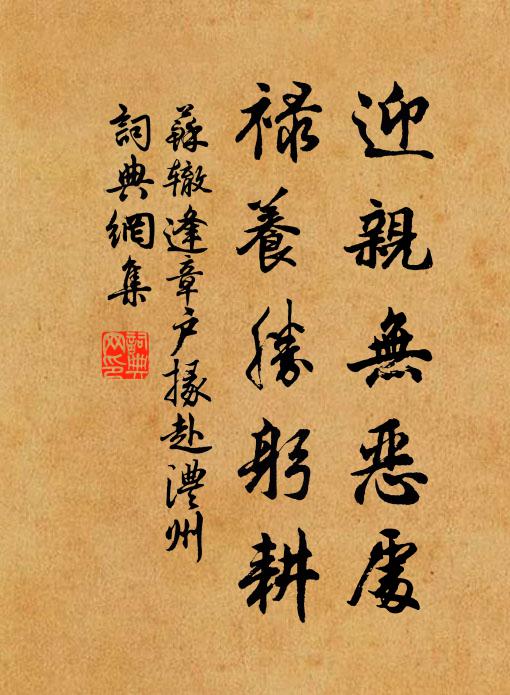 迎親無恶處
禄養勝躬耕
蘇辙逢章户掾赴澧州
詞典網集
詞典
网印